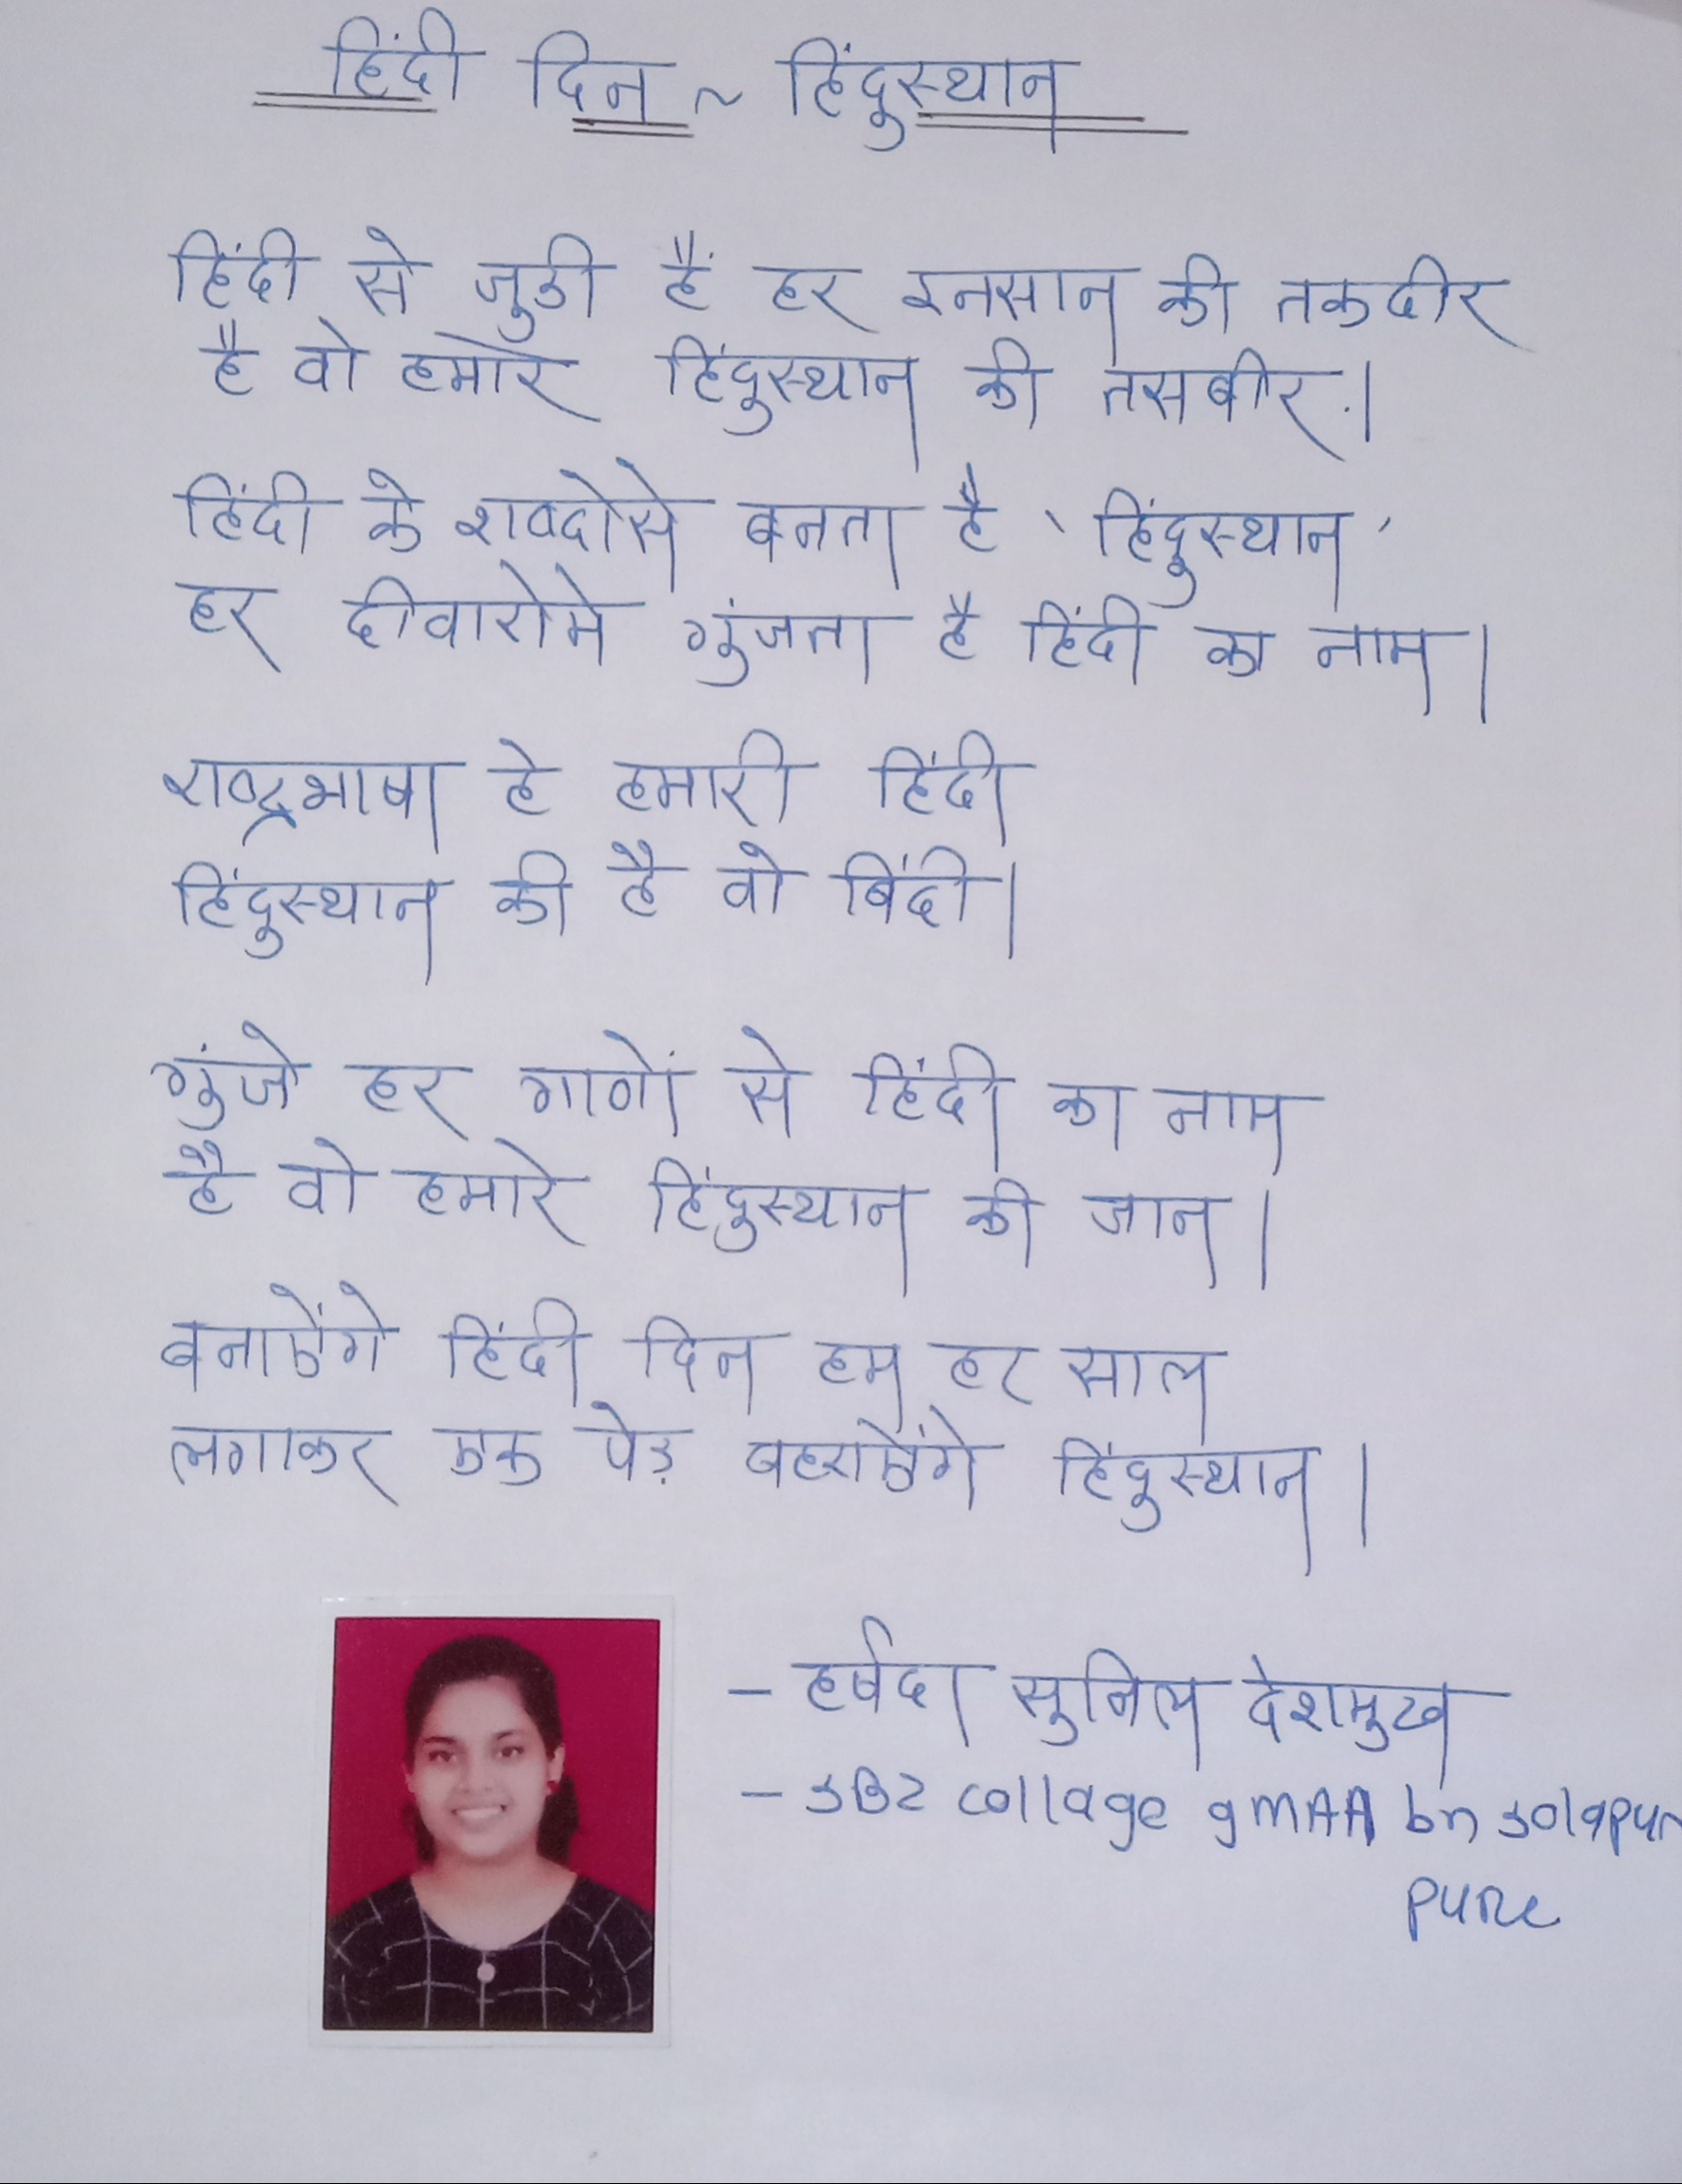 हिंदी दिन ~ हिंदुस्थान
हिंदी से जुडी हैं हर इनसान की तकदीर
है वो हमारे हिंदुस्थान की तसबीर.|
हिंदी के शब्दोसे बनता है 'हिंदुस्थान'
हर दीवारोमे गुंजता है हिंदी का नाम|
राष्ट्रभाषा हे हमारी हिंदी
हिंदुस्थान की है वो बिंदी|
गुंजे हर गावों से हिंदी का नाम
है वो हमारे हिंदुस्थान की जान|
बनाऐंगे हिंदी दिन हम हर साल
लगाकर एक पेड़ बहराऐंगे हिंदुस्थान|
- हर्षदा सुनिल देशमुख
- SBZ collage gmAA bn solapur
pune